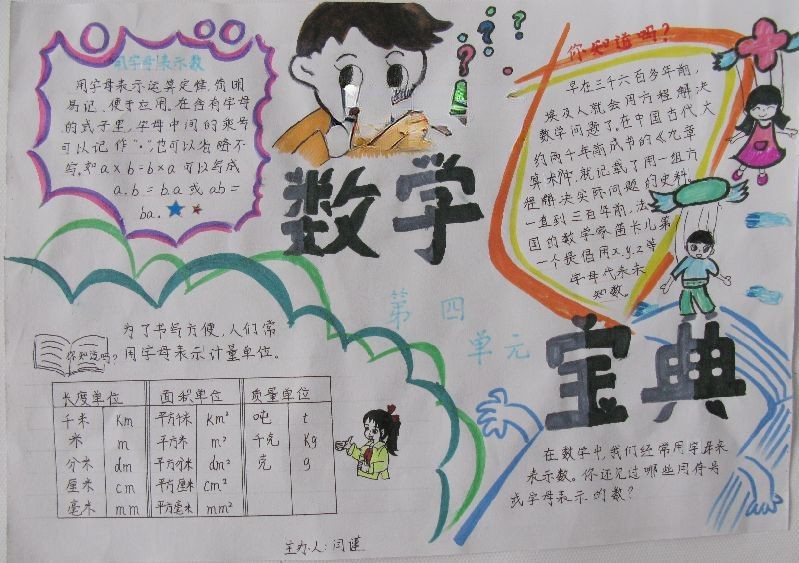 用字母表示数
用字母表示运算定律,简明
易记,便于应用。在含有字母
的式子里,字母中间的乘号
可以记作"·",也可以省略不
写。如a×b=b×a可以写成
a.b=b.a或ab=
ba.
数学
宝典
第四
单元
你知道吗?
早在三千六百多年前,
埃及人就会用方程解决
数学问题了。在中国古代,大
约两千年前成书的《九章
算术》中,就记载了用一组方
程解决实际问题的史料。
一直到三百年前,法
国的数学家笛卡儿第
一个提倡用x.y.z等
字母代表未
知数。
你知道吗?
为了书写方便,人们常
用字母表示计量单位。
长度单位 面积单位 质量单位
千米 km 平方千米 km² 吨 t
米 m 平方米 m² 千克 kg
分米 dm 平方分米 dm² 克 g
厘米 cm 平方厘米 cm²
毫米 mm 平方毫米 mm²
在数学中,我们经常用字母来
表示数。你还见过哪些用符号
或字母表示的数?
主办人:闫